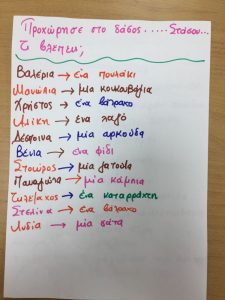 Προχώρησε στο δάσος..... Στάσου...
Τι βλέπεις;
Βαλέρια → ένα πουλάκι
Μανώλια → μία κουκουβάγια
Χρήστος → ένα βάτραχο
Αλίκη → ένα λαγό
Δέσποινα → μία αρκούδα
Βένια → ένα φίδι
Σταύρος → μια χελώνα
Παναγιώτα → μία κάμπια
Τηλέμαχος → ένα καταρράκτη
Στελίνα → ένα βάτραχο
Λυδία → μία γάτα